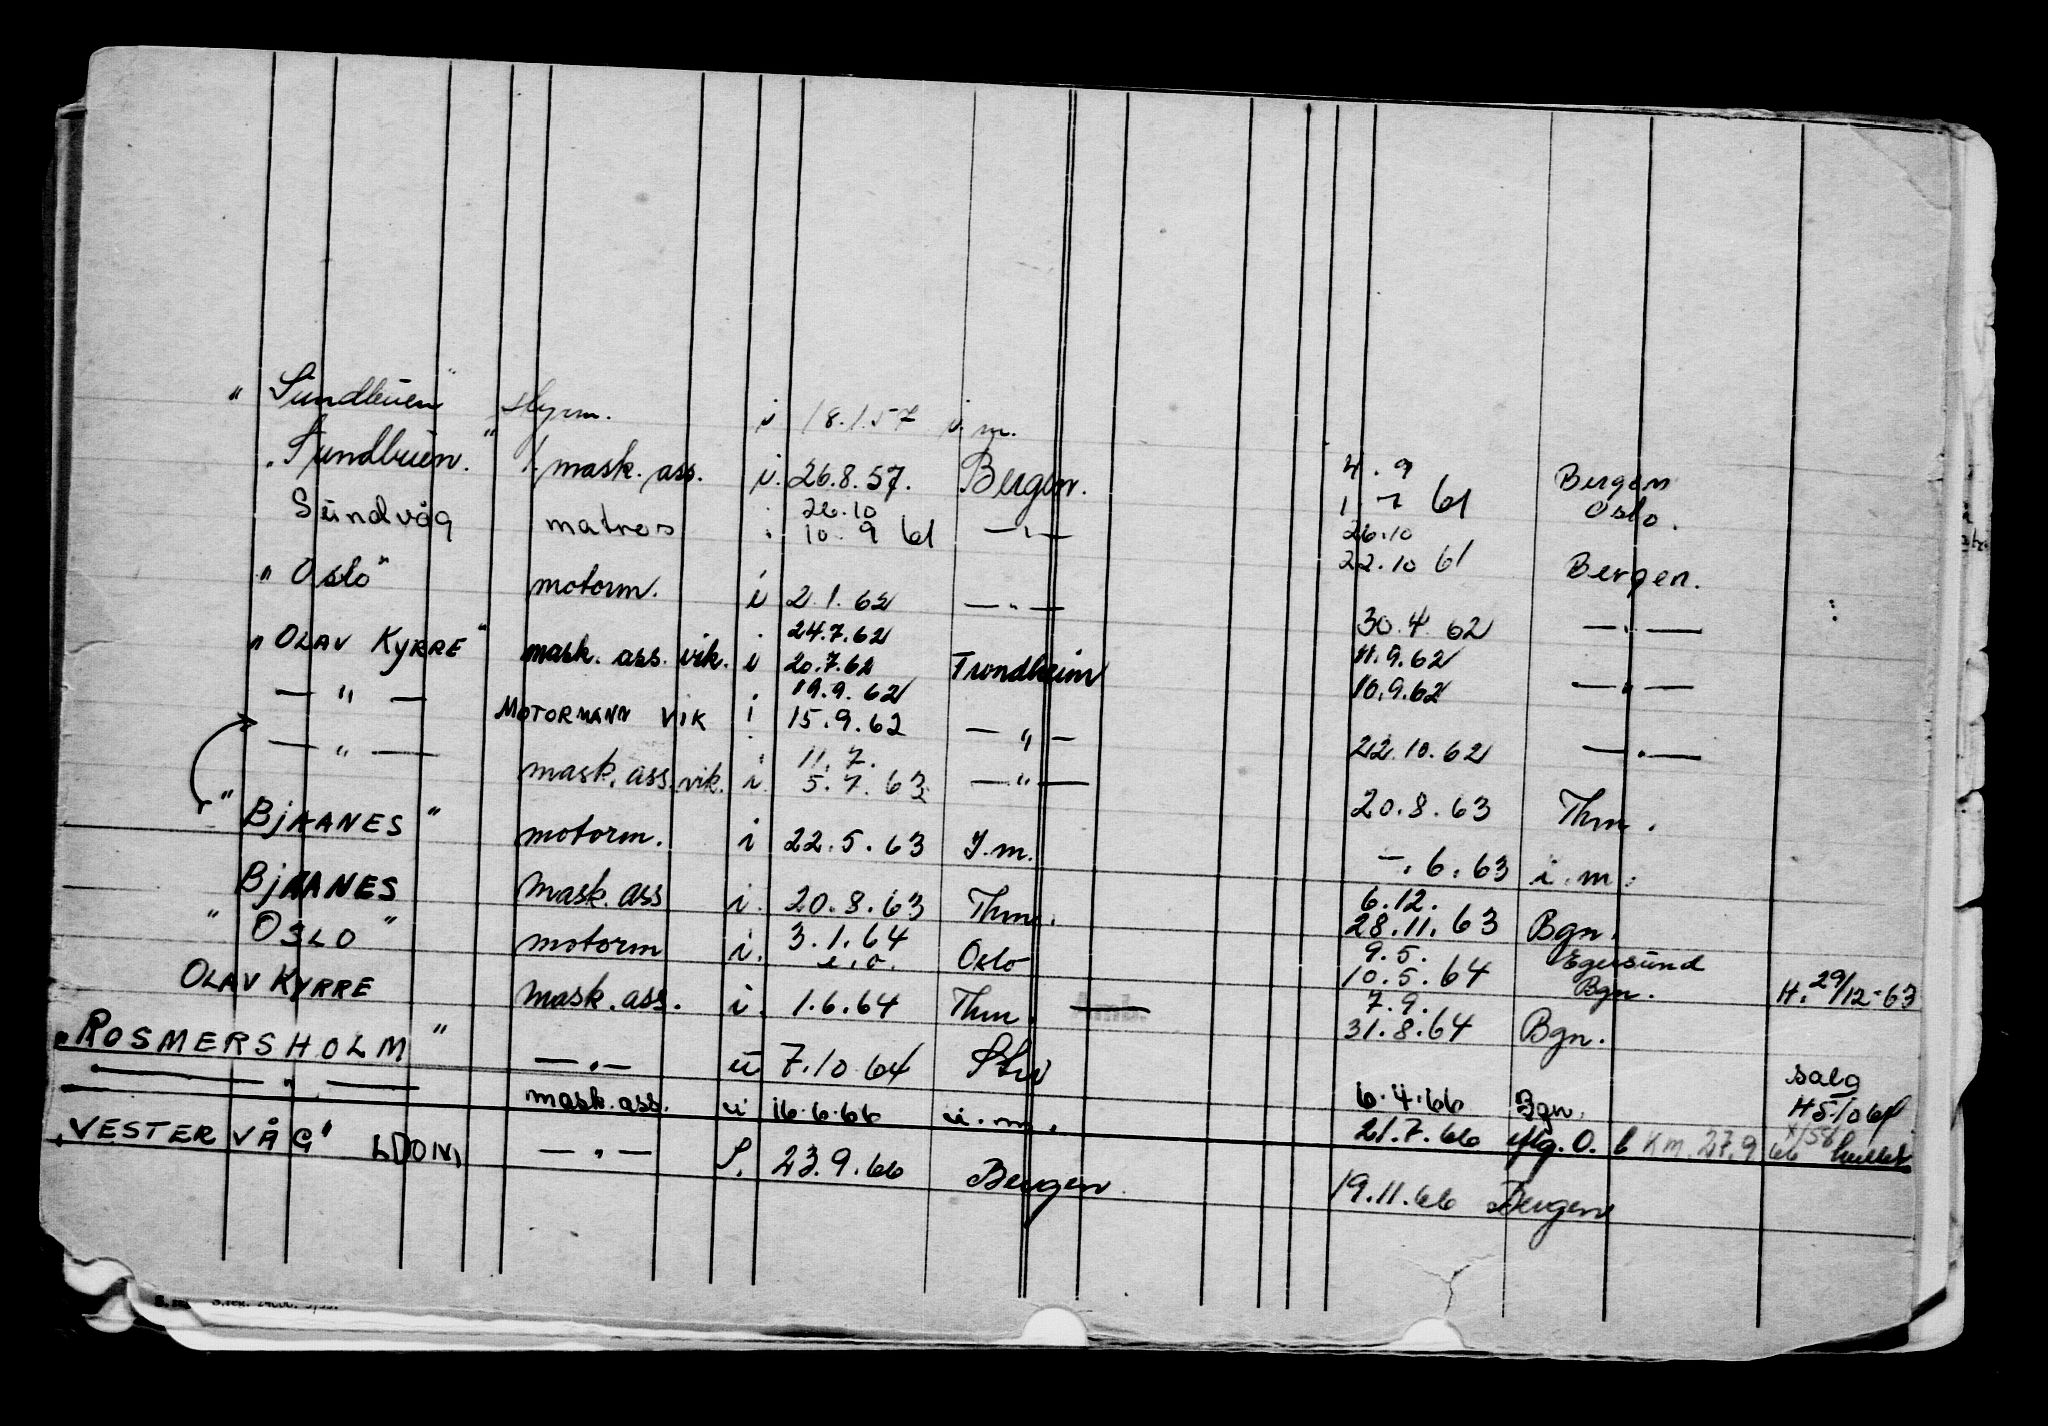 " Sundbuen " styrm. i 18.1.57 i.m.
" Sundbuen. " 1. mask. ass. i. 26.8.57. Bergen. 4.9 Bergen
26.10 1 - 7 61 Oslo.
Sundvåg matros i 10.9 61 — " — 26.10
22.10 61 Bergen.
" Oslo " motorm. i 2.1.62 — " — 30.4.62 — " —
24.7.62 11.9.62
" OLAV KYRRE " mask. ass. vik. i 20.7.62 Trondheim 10.9.62 — " —
19.9.62
— " — MOTORMANN VIK i 15.9.62 — " — 22.10.62 — " —
11.7.
— " — mask. ass. vik. i. 5.7.63 — " — 20.8.63 Thm.
" BJAANES " motorm. i 22.5.63 I.m. —.6.63 i.m.
6.12.
BJAANES mask. ass i. 20.8.63 Thm. 28.11.63 Bgn.
3.1.64 9.5. Egersund
" OSLO " motorm i. i.o. Oslo 10.5.64 Bgn. H. 29/12-63
7.9.
OLAV KYRRE mask. ass. i. 1.6.64 Thm. 31.8.64 Bgn.
" ROSMERSHOLM " — " — ü 7.10.64 salg
— " — mask. ass. u 16.6.66 u.m. 6.4.66 Bgn. H 5/10 64
21.7.66 iflg. O. b KM 27.9 66
" VESTERVÅG " — " — S. 23.9.66 Bergen 19.11.66 Bergen